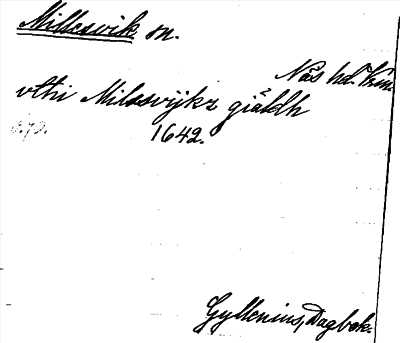 Millesvik sn.
Näs hd. Vrm.
vthi Milssvijkz giäldh
1642.
Gyllenius, Dagbok.